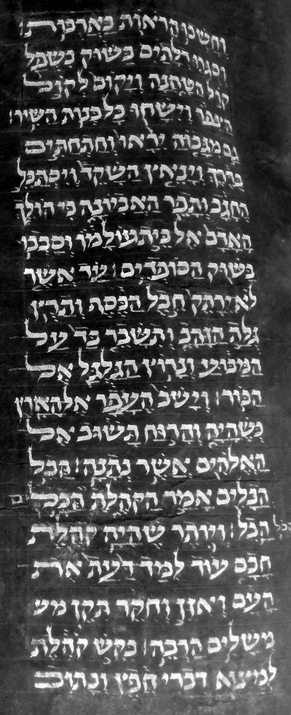 וחשכו הראות בארבות:
וסגרו דלתים בשוק בשפל
קול הטחנה ויקום לקול
הצפור וישחו כל בנות השיר:
גם מגבוה יראו וחתחתים
בדרך וינאץ השקד ויסתבל
החגב ותפר האביונה כי הולך
האדם אל בית עולמו וסבבו
בשוק הסופדים: עד אשר
לא ירתק חבל הכסף ותרץ
גלת הזהב ותשבר כד על
המבוע ונרוץ הגלגל אל
הבור: וישב העפר אל הארץ
כשהיה והרוח תשוב אל
האלהים אשר נתנה: הבל
הבלים אמר הקהלת הכל
הבל: ויותר שהיה קהלת
חכם עוד למד דעת את
העם ואזן וחקר תקן מש
משלים הרבה: בקש קהלת
למצא דברי חפץ וכתוב